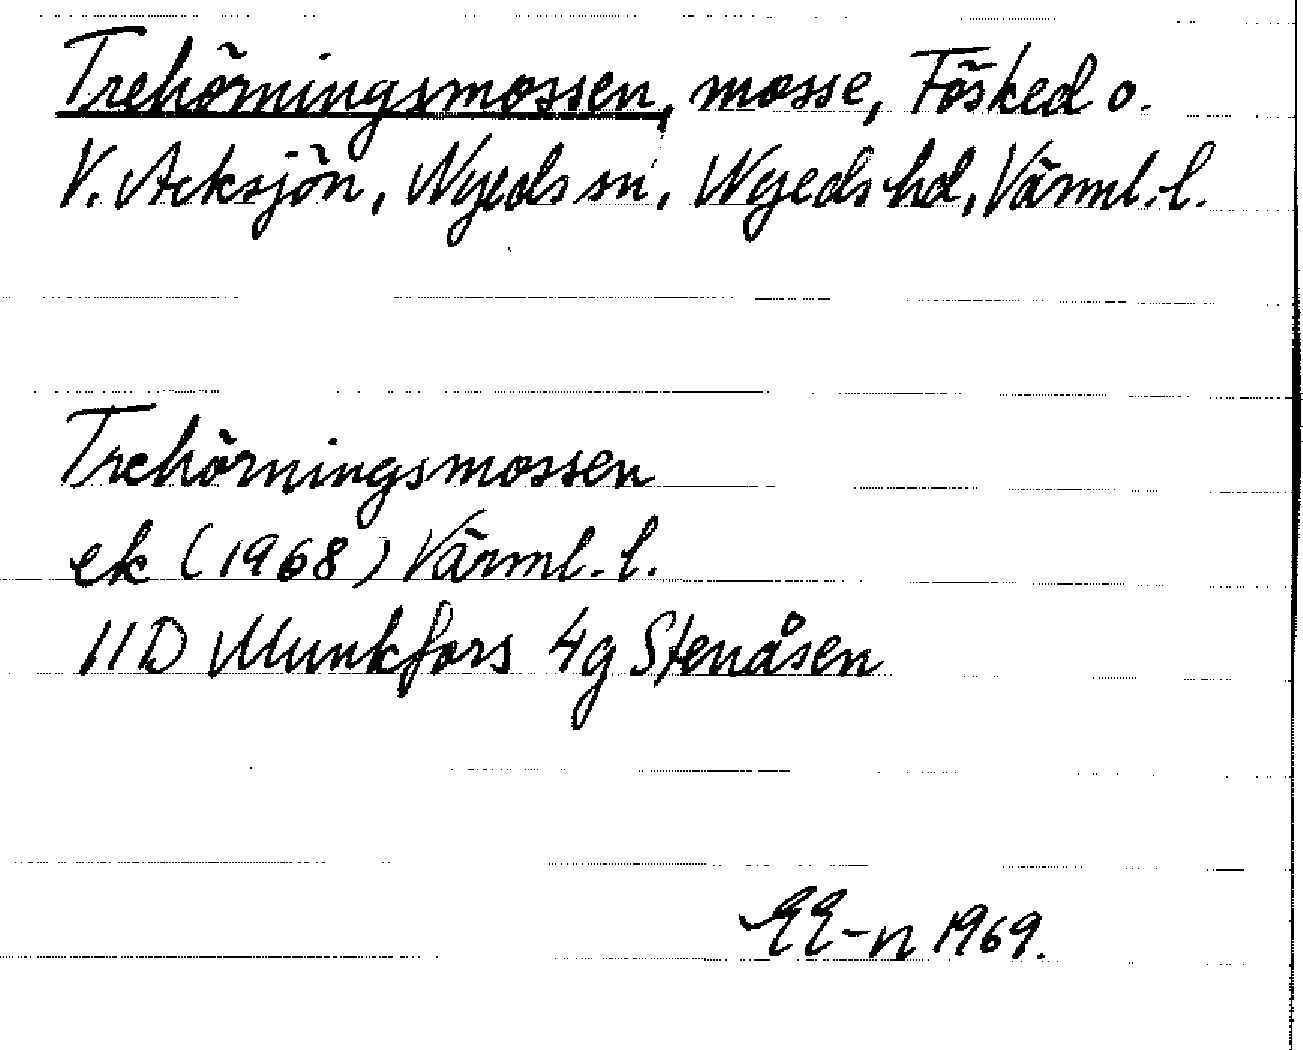 Trehörningsmossen, mosse, Fösked o.
V. Acksjön, Nyeds sn, Nyeds hd, Värml. l.
Trehörningsmossen
ek (1968) Värml. l.
11D Munkfors 4g Stenåsen
EE-n 1969.